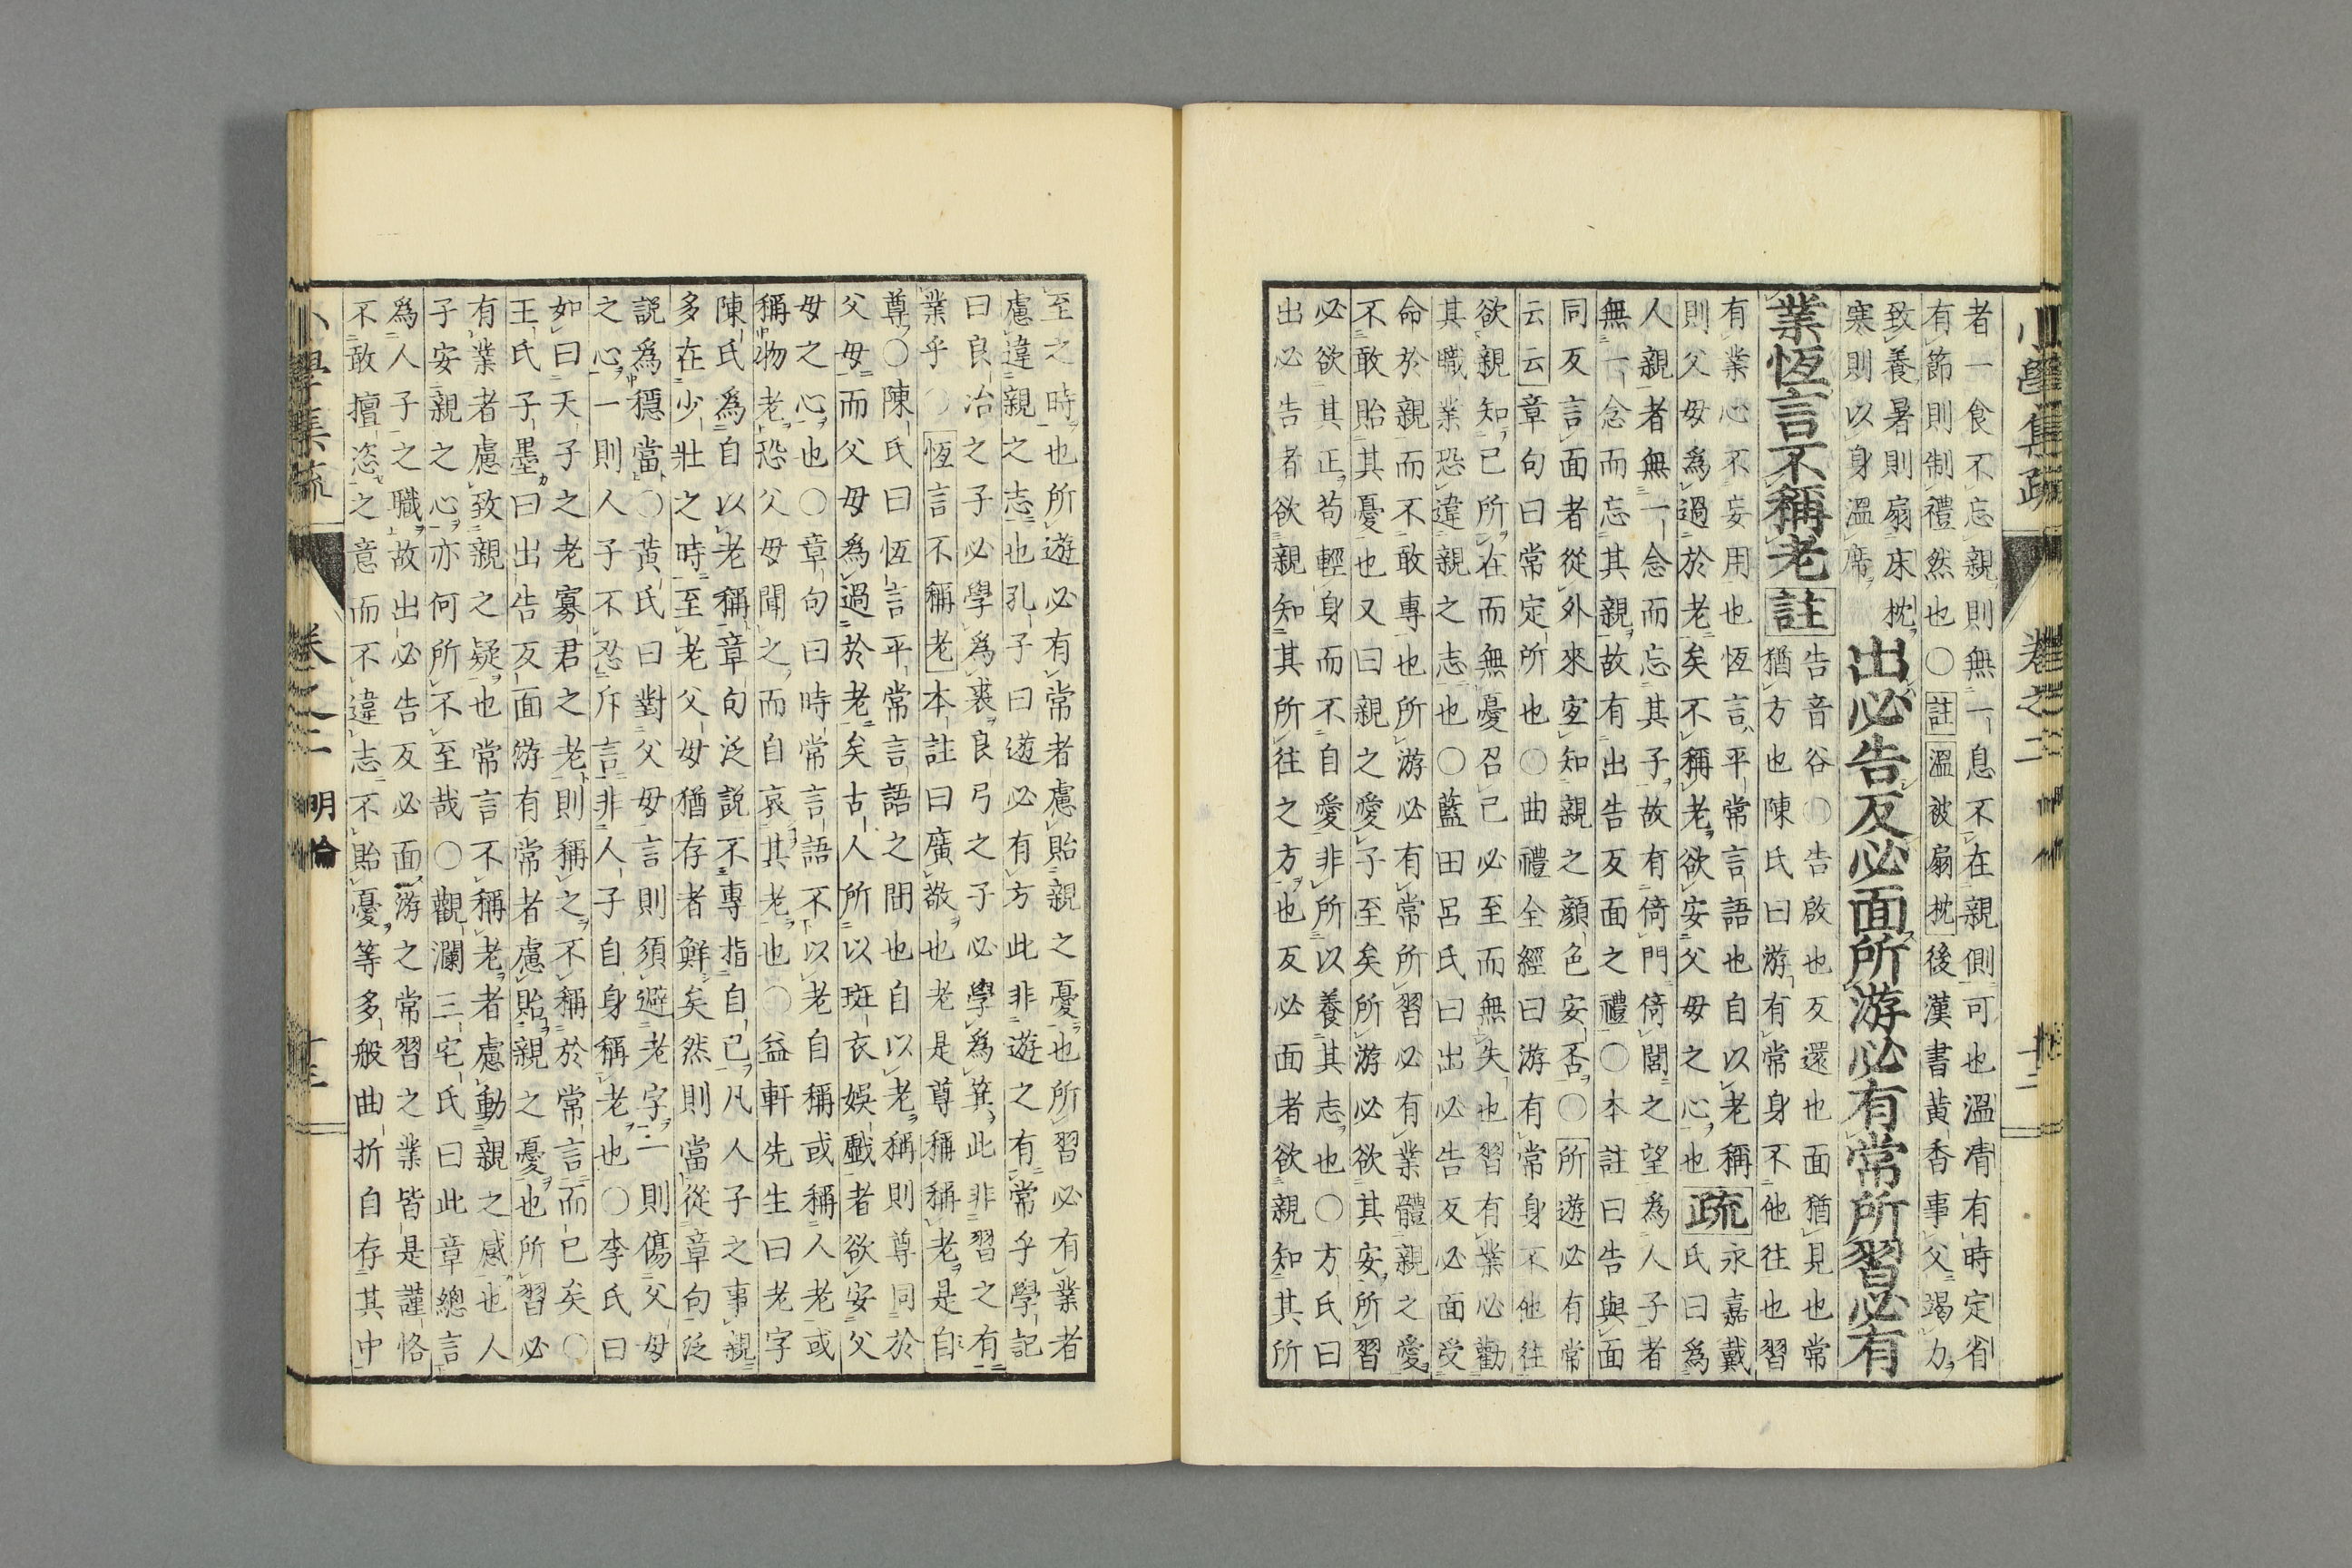 小學集疏 卷之二 十二
者一食不忘親則無一息不在親側可也溫凊有時定省
有節則制禮然也〇註溫被扇枕後漢書黃香事父竭力
致養暑則扇床枕
寒則以身溫席
出必告反必面所游必有常所習必有
業恆言不稱老註
告音谷〇告啟也反還也面猶見也常
猶方也陳氏曰游有常身不他往也習
有業心不妄用也恆言平常言語也自以老稱
則父母為過於老矣不稱老欲安父母之心也
疏
永嘉戴
氏曰為
人親者無一念而忘其子故有倚門倚閭之望為人子者
無一念而忘其親故有出告反面之禮〇本註曰告與面
同反言面者從外來宜知親之顏色安否〇所遊必有常
云云章句曰常定所也〇曲禮全經曰游有常身不他往
欲親知己所在而無憂召己必至而無失也習有業必勸
其職業恐違親之志也〇藍田呂氏曰出必告反必面受
命於親而不敢專也所游必有常所習必有業體親之愛
不敢貽其憂也又曰親之愛子至矣所游必欲其安所習
必欲其正苟輕身而不自愛非所以養其志也〇方氏曰
出必告者欲親知其所往之方也反必面者欲親知其所
至之時也所遊必有常者慮貽親之憂也所習必有業者
慮違親之志也孔子曰遊必有方此非遊之有常乎學記
曰良冶之子必學為裘良弓之子必學為箕此非習之有
業乎〇恆言不稱老本註曰廣敬也老是尊稱稱老是自
尊〇陳氏曰恆言平常言語之間也自以老稱則尊同於
父母而父母為過於老矣古人所以斑衣娛戲者欲安父
母之心也〇章句曰時常言語不以老自稱或稱人老或
稱物老恐父母聞之而自哀其老也〇益軒先生曰老字
陳氏為自以老稱章句泛說不專指自己凡人子之事親
多在少壯之時至老父母猶存者鮮矣然則當從章句泛
說為穩當〇黃氏曰對父母言則須避老字一則傷父母
之心一則人子不忍斥言非人子自身稱老也〇李氏曰
如曰天子之老寡君之老則稱之不稱於常言而已矣〇
王氏子墨曰出告反面游有常者慮貽親之憂也所習必
有業者慮致親之疑也常言不稱老者慮動親之感也人
子安親之心亦何所不至哉〇觀瀾三宅氏曰此章總言
為人子之職故出必告反必面游之常習之業皆是謹恪
不敢擅恣之意而不違志不貽憂等多般曲折自存其中
小學集疏 卷之二 明倫 十三